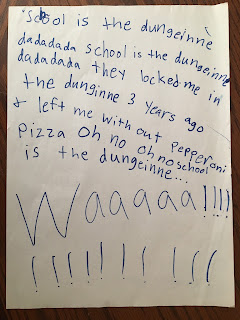 School is the dungeinne
dadadada school is the dungeinne
dadadada they locked me in
the dunginne 3 Years ago
& left me with out pepperoni
pizza Oh no Oh no school
is the dungeinne...
Waaaaa!!!!
!!!!!!! !!!